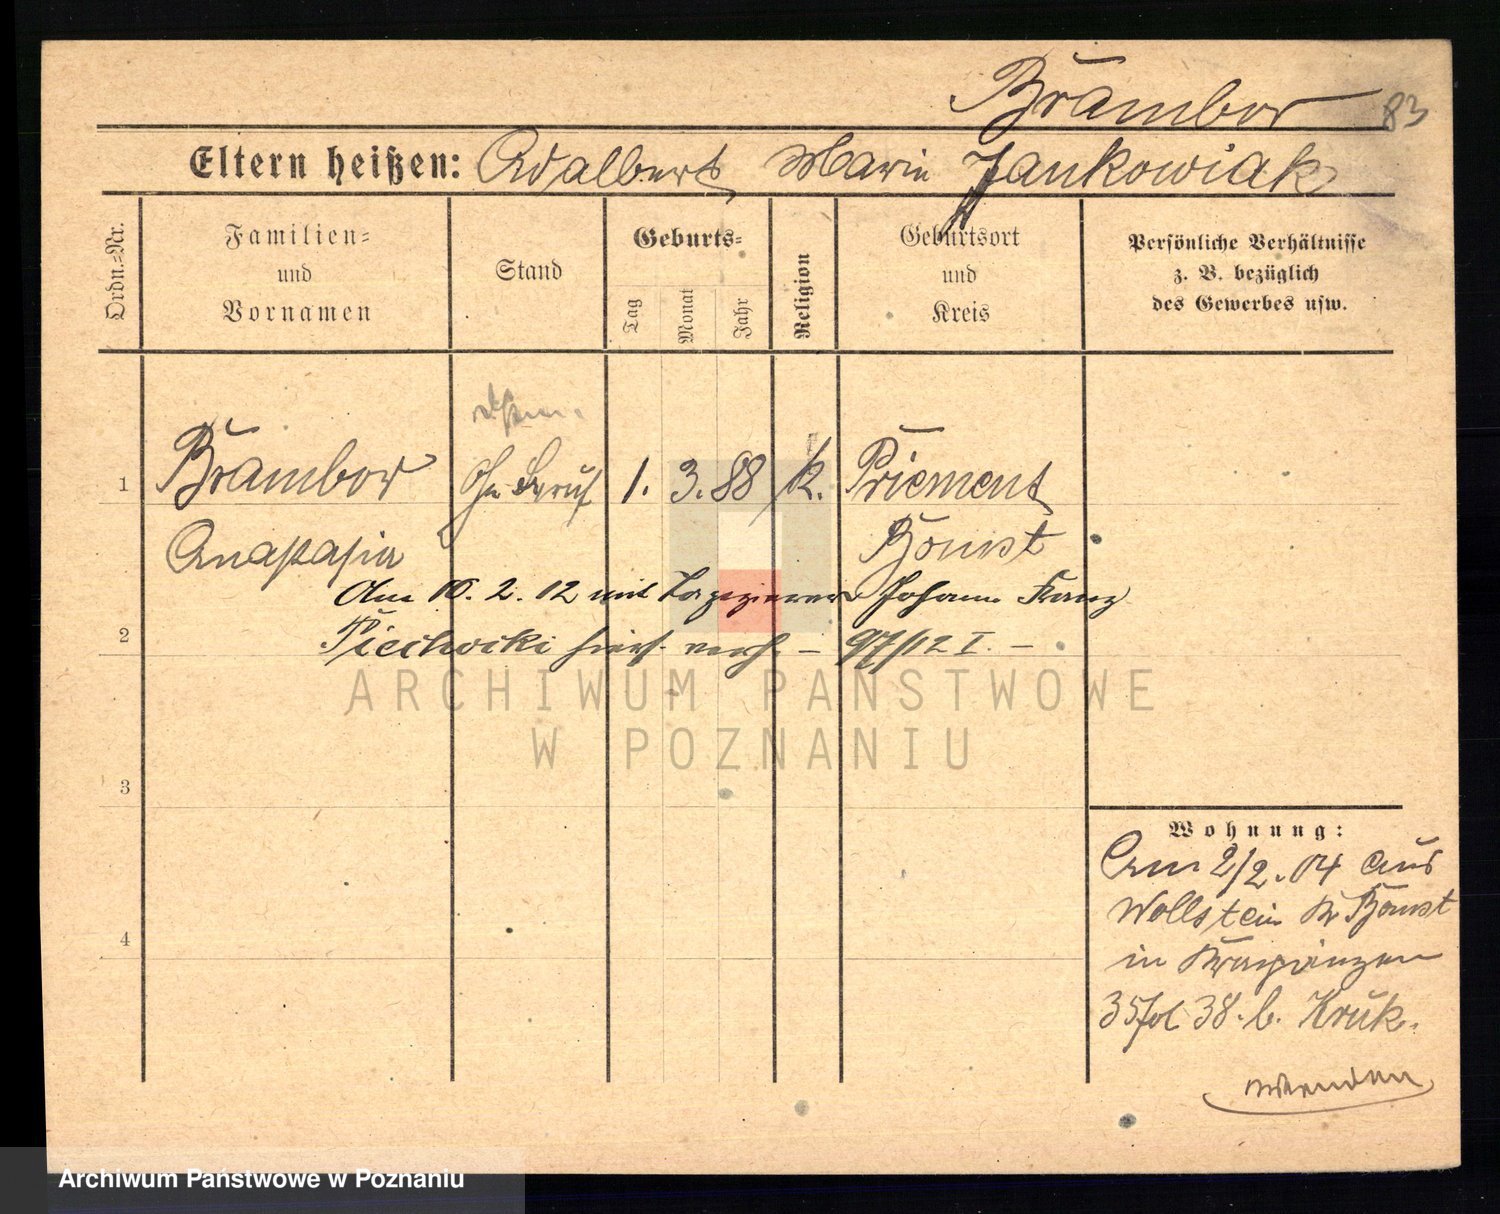 Brambor 83
Eltern heißen: Adalbert Marie Jankowiak
Ordn.-Nr.
Familien-
und
Vornamen
Stand
Geburts-
Tag
Monat
Jahr
Religion
Geburtsort
und
Kreis
Persönliche Verhältnisse
z. B. bezüglich
des Gewerbes usw.
1 Brambor Oh Beruf 1. 3. 88 k. Priement
Anastasia Bomst
Am 10. 2. 12 mit Tapezierer Johann Franz
2 Piechocki hiers. verh. – 97/12 I. –
3
4
Wohnung:
Am 2/2. 04 aus
Wollstein Kr Bomst
in
35 38. b. Kruk.
wenden
ARCHIWUM PAŃSTWOWE
W POZNANIU
Archiwum Państwowe w Poznaniu